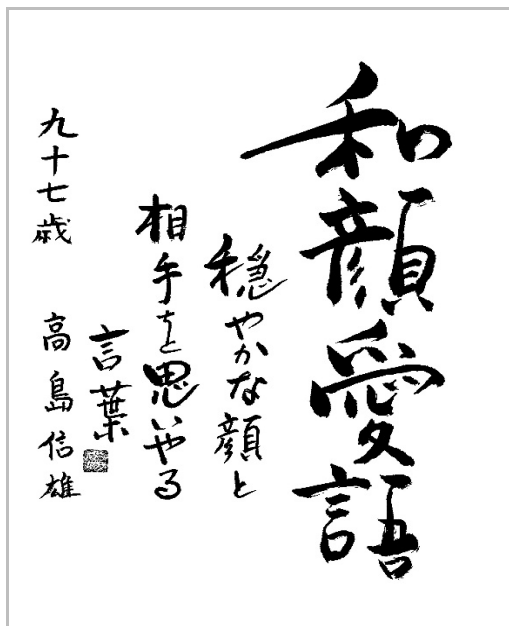 和顔愛語
穏やかな顔と
相手を思いやる
言葉
九十七歳 高島信雄